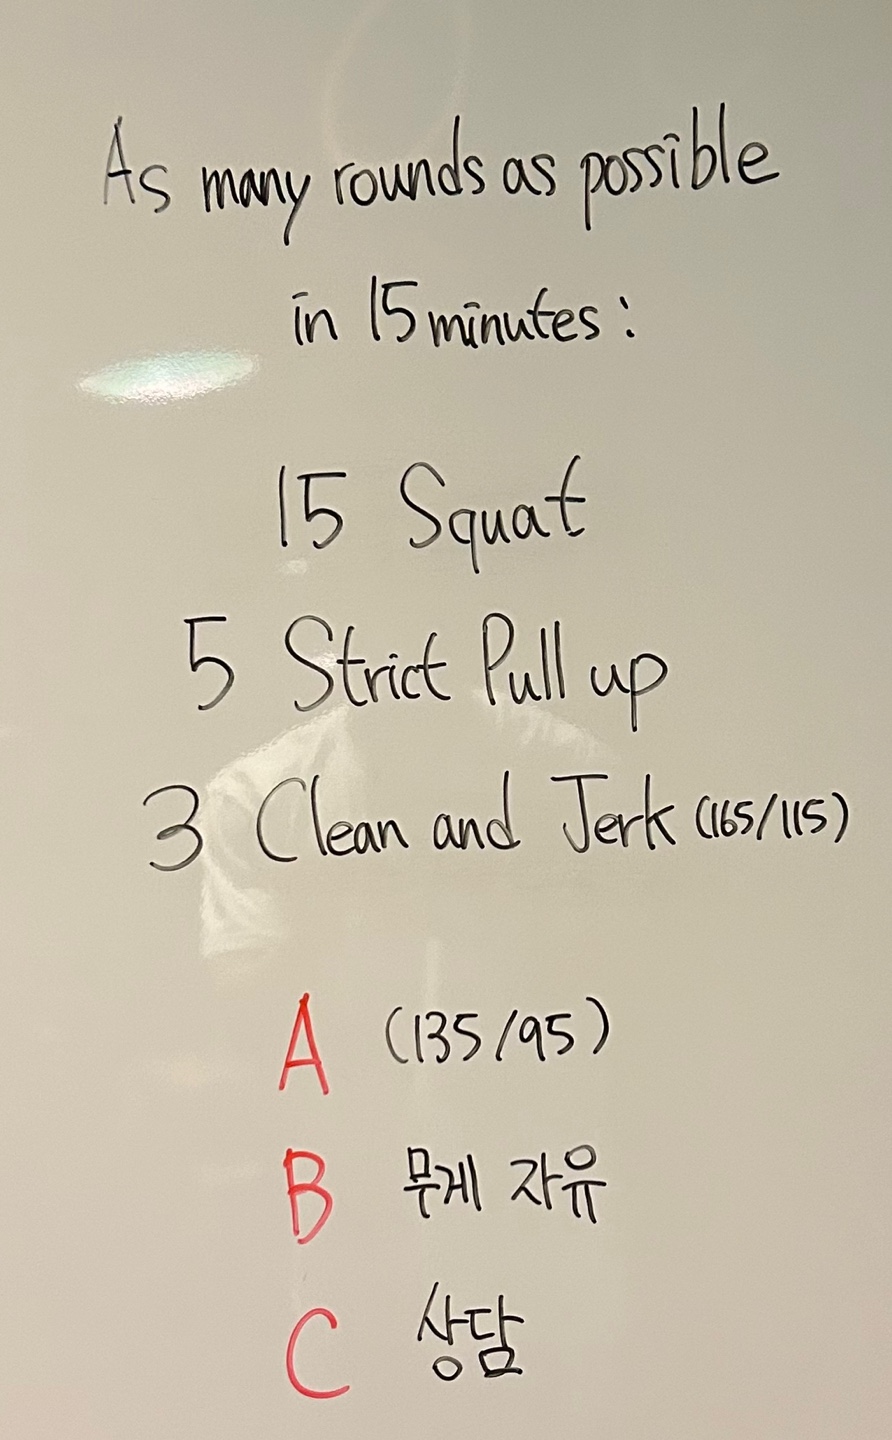 As many rounds as possible
in 15 minutes:
15 Squat
5 Strict Pull up
3 Clean and Jerk (165/115)
A (135/95)
B 무게 자유
C 상담